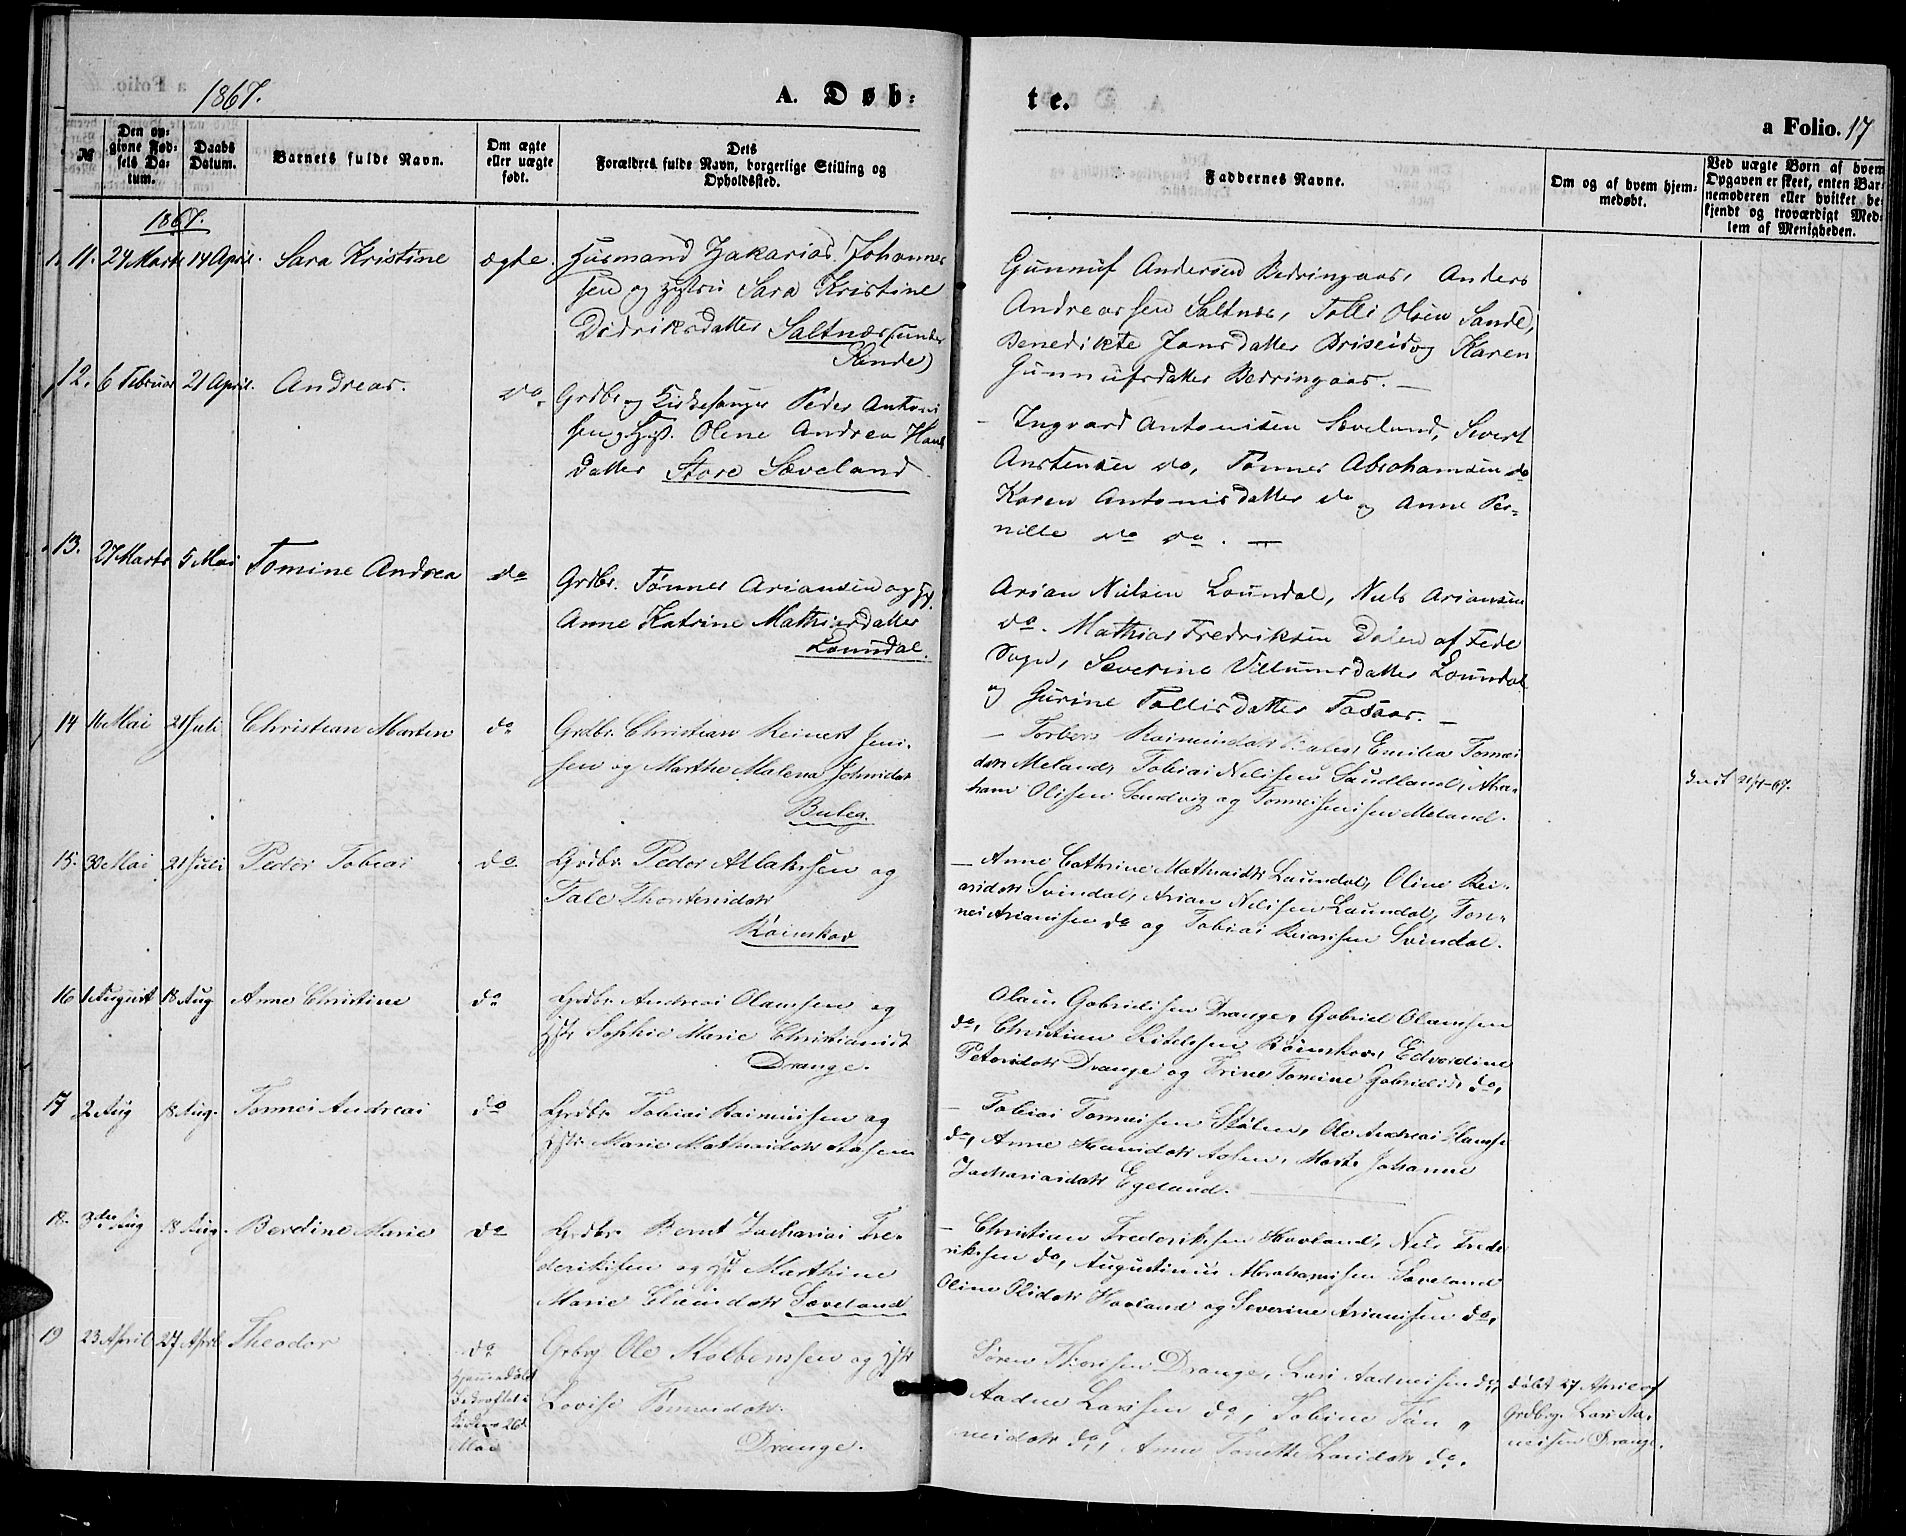 1867.
A. Døb=
te.
a Folio. 17
№
Den op=
givne Fød=
sels Da=
tum.
Daabs
Datum.
Barnets fulde Navn.
Om ægte
eller uægte
født.
Dets
Forældres fulde Navn, borgerlige Stilling og
Opholdssted.
Faddernes Navne.
Om og af hvem hjem=
medøbt.
Ved uægte Børn af hvem
Opgaven er skeet, enten Bar=
nemoderen eller hvilket be=
kjendt og troværdigt Med=
lem af Menigheden.
1867.
11. 24 Marts 14 April. Sara Kristine ægte. Husmand Zakarias Johannes
sen og Hustru Sara Kristine
Didriksdatter Saltnæs (under
Sande)
Gunnuf Andersen Berringaas, Anders
Andreassen Saltnæs, Tolli Olsen Sande,
Benedikte Jansdatter Briseid og Karen
Gunnufsdatter Berringaas. —
12. 6 Februar 21 April. Andreas. do. Grdbr og Kirkesanger Peder Antoni
sen og Hust. Olene Andrea Hans
datter Store Sæveland
— Ingvard Antonisen Sæveland, Sivert
Anstensen do, Tønnes Abrahamsen do
Karen Antonisdatter do og Anne Per=
nille do do. —
13. 27 Marts 5 Mai Tomine Andrea do Grdbr. Tønnes Ariansen og H.
Anne Katrine Mathiasdatter
Loundal.
Arian Nielsen Loundal, Niels Ariansen
do. Mathias Fredriksen Dalen af Fede
Sogn, Severine Villumsdatter Loundal
og Gurine Tollisdatter Tosaas. —
14 16 Mai 21 Juli Christian Marten do Grdbr. Christian Reinert Jens=
sen og Marthe Malena
Buleg.
— Torbor Emilia Tønnes
datr Meland, Tobias Nilssen Saudland, Abra=
ham Olssen Sandvig og Tønnes Jenssen Meland.
Indt 21/7–67.
15. 30 Mai 21 Juli Peder Tobias do Grdbr. Peder Atlakssen og
Tale Thortensdatr
Røinskar
— Anne Cathrine Mathiasdtr Laundal, Oline Rei=
arsdatr Svindal, Arian Nilssen Laundal, Tøn=
nes Arianssen do og Tobias Reiarssen Svindal.
16 1 August 18 Aug Anne Christine do Grdbr. Andreas Olaussen og
Hstr. Sophie Marie Christiansdt
Drange.
Olaus Gabrielssen Drange, Gabriel Olaussen
do, Christian Kitelssen Røinskar, Edvardine
Petersdatr Drange og Trine Tomine Gabrielsdr do,
17 2 Aug 18 Aug. Tønnes Andreas do Grdbr. Tobias Rasmussen og
Hstr. Marie Mathiasdatr Aasen
— Tobias Tønnessen Stølen, Ole Andreas Hanss.
do, Anne Hansdatr Aasen, Marte Johanne
Zachariasdatr Egeland.
18. 3die Aug 18 Aug. Berdine Marie do Grdbr. Bernt Zacharias Fre=
deriksen og Hst Marthine
Marie Clausdatr Sæveland
— Christian Frederikssen Hovland, Nils Frede
rikssen do, Augustinus Abrahamssen Sæveland
Oline Olsdatr Hovland og Severine Arianssen do,
19 23 April 27 April Theodor do
Hjemmedøbt
Bekræftet i
Kirken 26de
Mai
Grbrg Ole Kolbenssen og Hstr
Lovise Tønnesdatr
Drange.
Søren Drange, Lars Aadnessen do,
Aadne Larssen do, Tobine Tøn "
nesdatr do, Anne Tonette Larsdatr do.
døbt 27 April af
Grdbrg. Lars Aa=
nessen Drange.